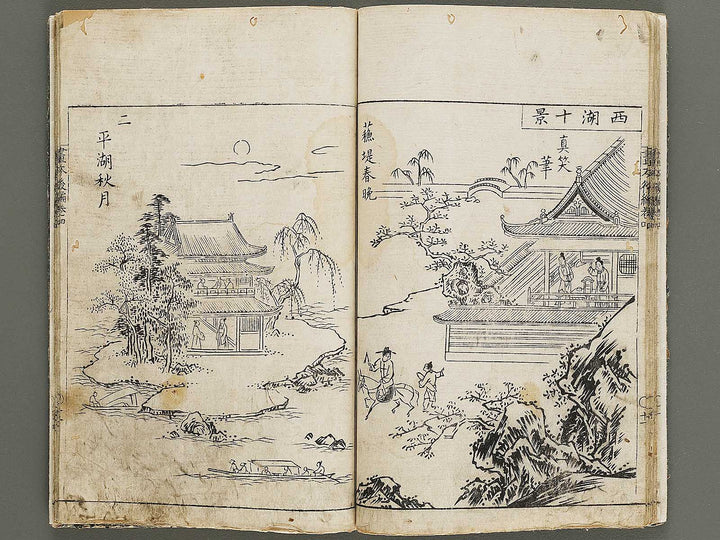 西湖十景
真笑
華
蘓堤春晩
二
平湖秋月